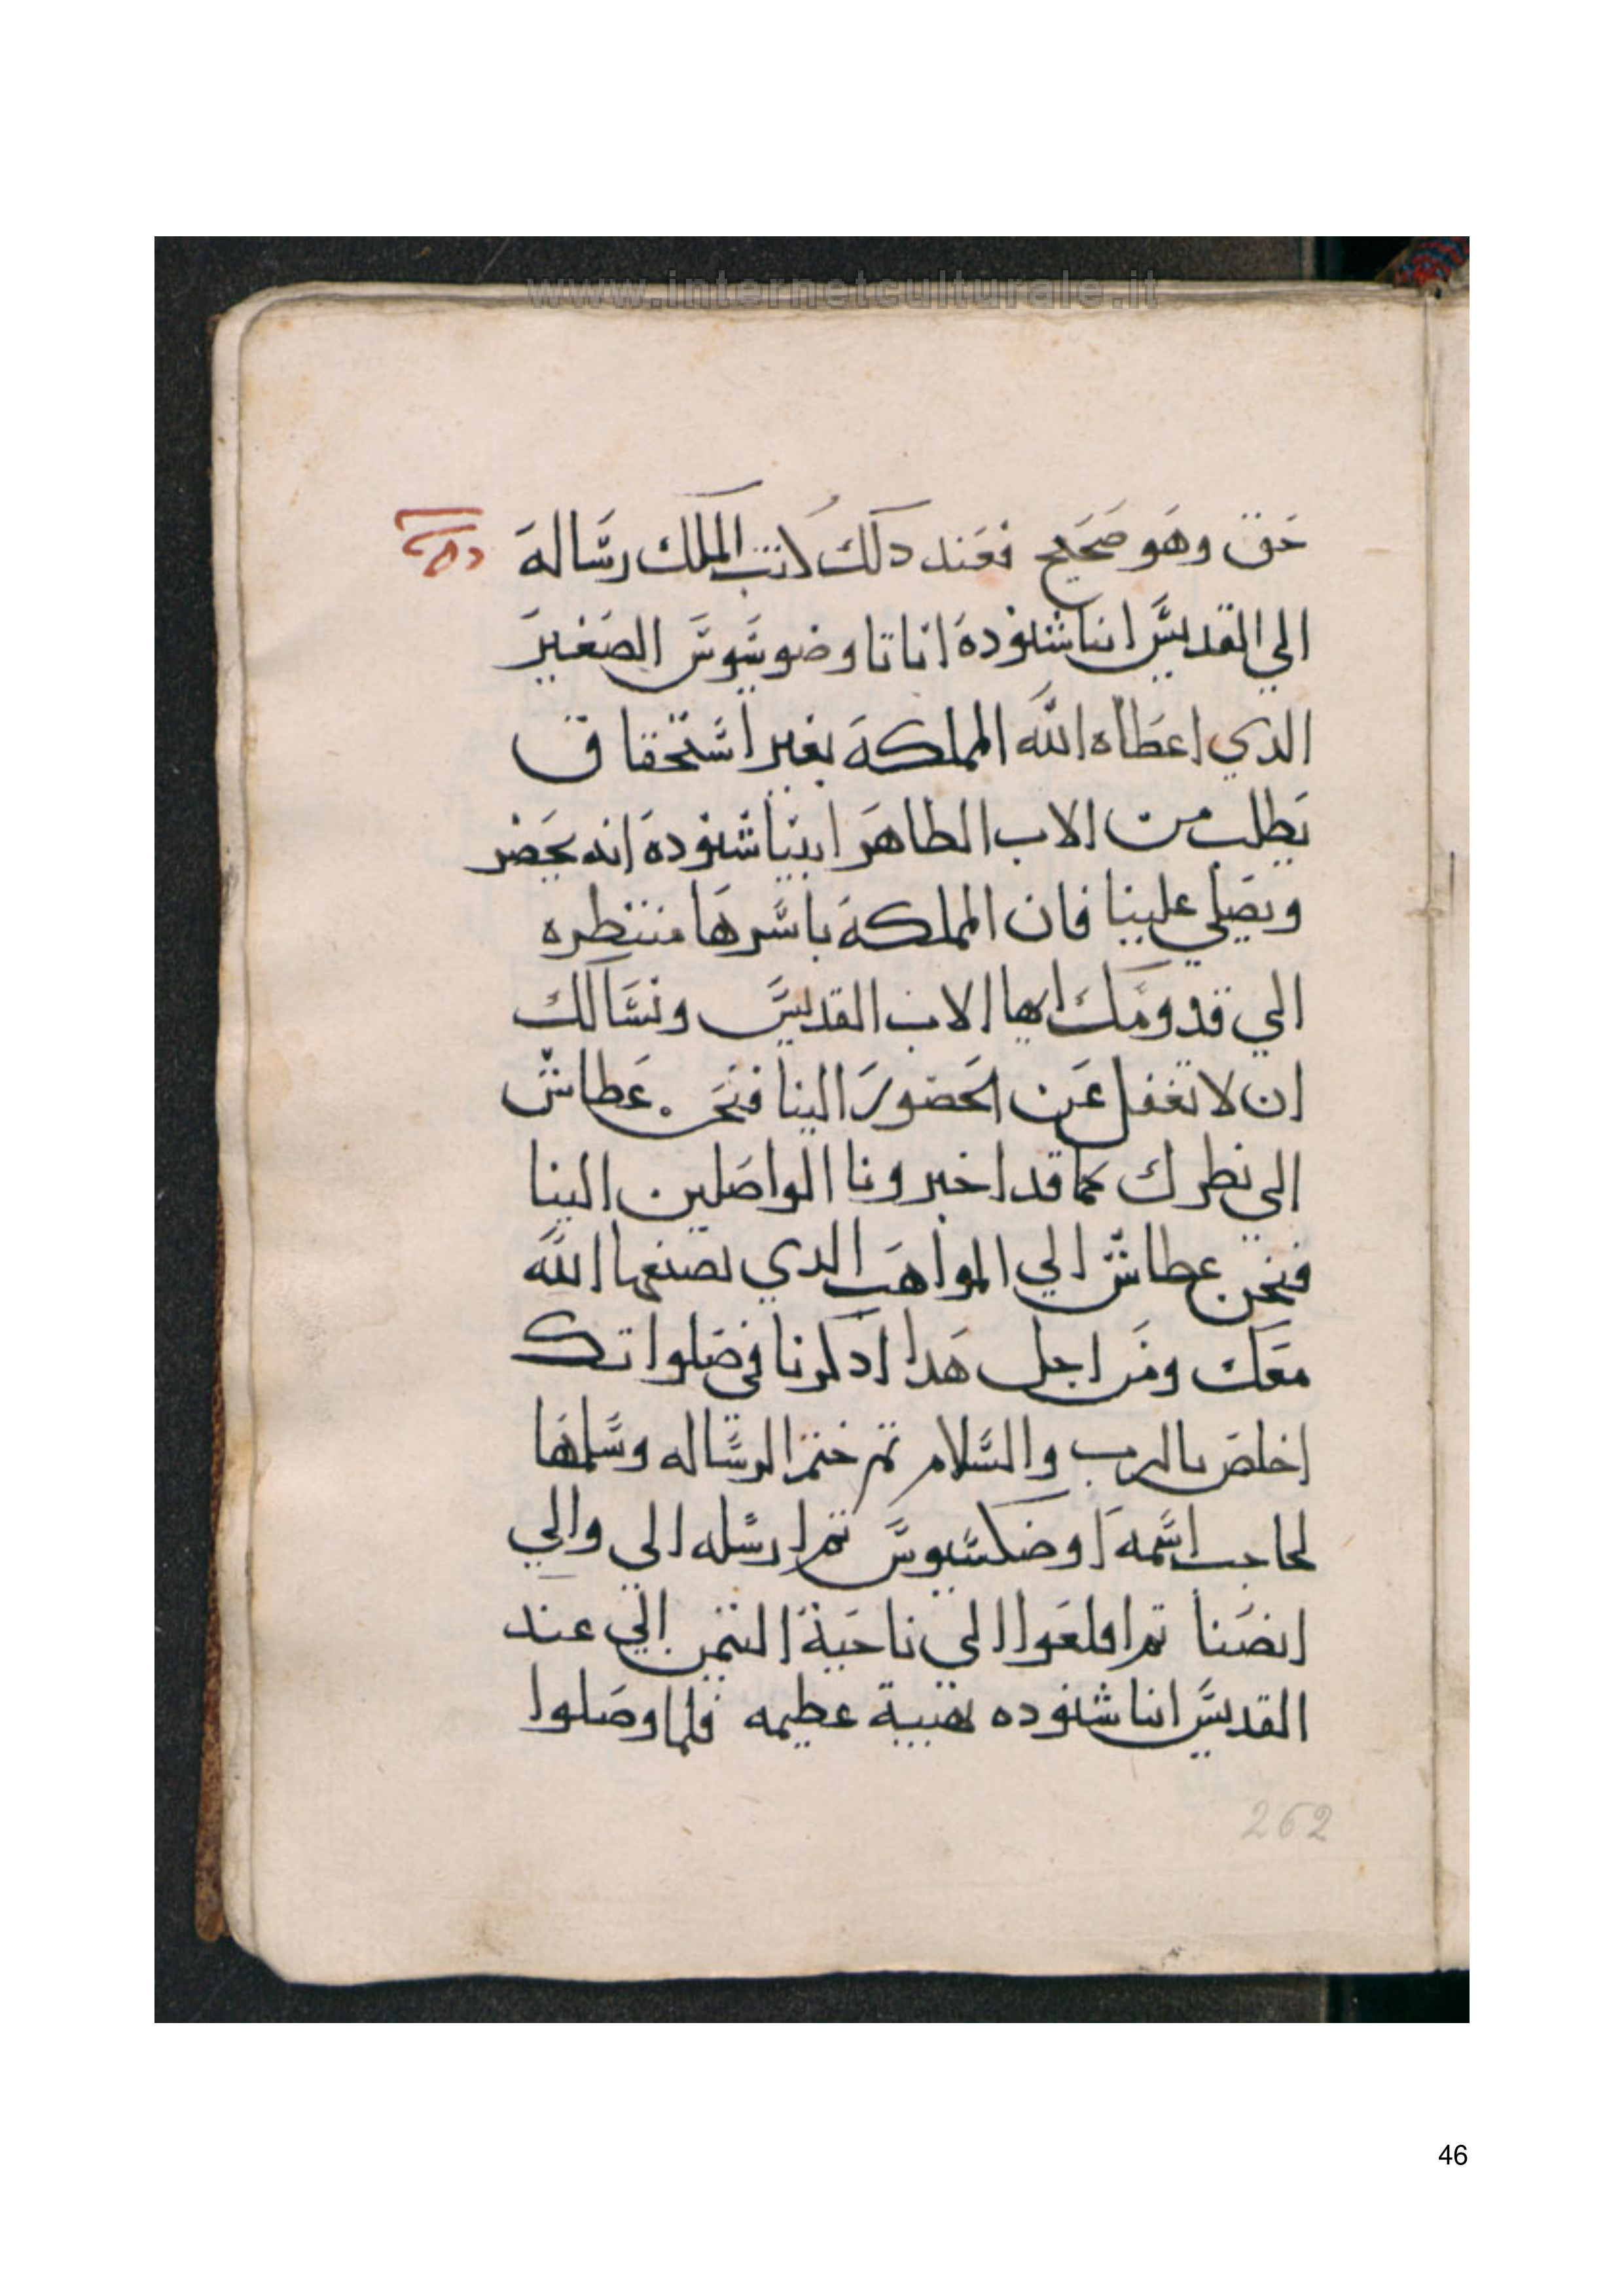 www.internetculturale.it
حق وهو صحيح فعند دلك كتب الملك رساله
الي القديس انبا شنوده انا تاوضوسيوس الصغير
الدي اعطاه الله المملكة بغير استحقاق
يطلب من الاب الطاهر ابينا شنوده انه يحضر
ويصلي علينا فان المملكة باسرها منتظره
الي قدومك ايها الاب القديس ونسالك
ان لا تغفل عن الحضور الينا فنحن عطاش
الي نظرك كما قد اخبرونا الواصلين الينا
فنحن عطاش الي المواهب الدي يصنعها الله
معك ومن اجل هدا ادكرنا في صلواتك
اخلص بالرب والسلام تم ختم الرساله وسلمها
لحاجب اسمه اوضكسيوس تم ارسله الي والي
انصنا تم اقلعوا الي ناحية التمن الي عند
القديس انبا شنوده بهيبة عظيمه فلما وصلوا
262
46